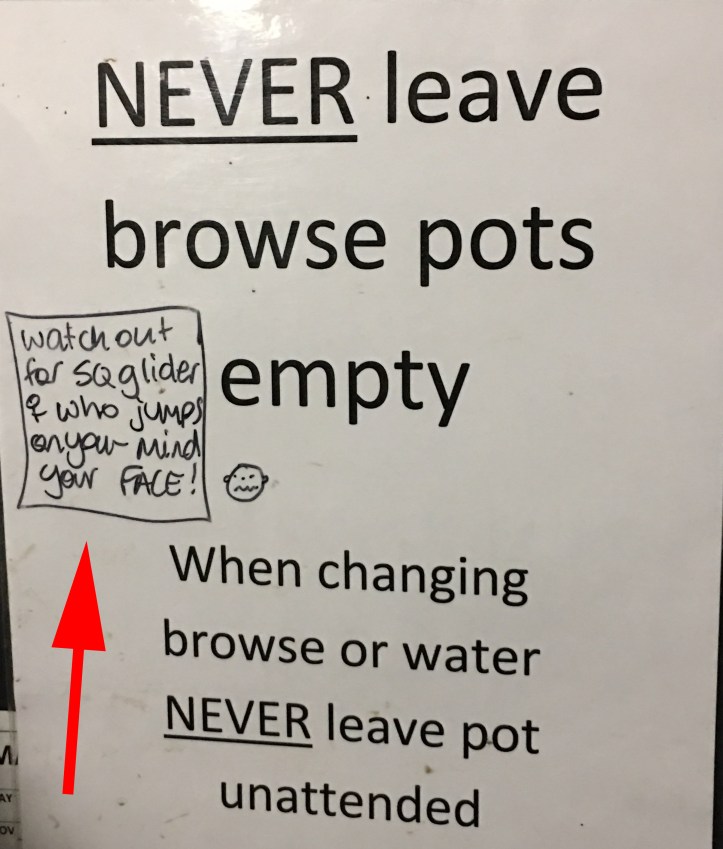 NEVER leave
browse pots
empty
watch out
for SQ glider
♀ who jumps
on you - Mind
your FACE!
When changing
browse or water
NEVER leave pot
unattended
AY
OV